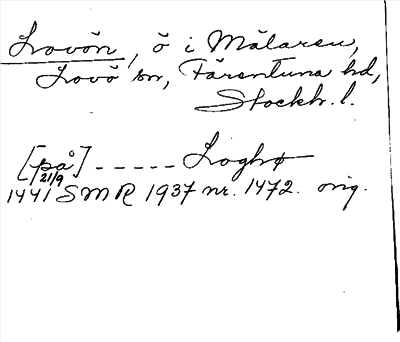 Lovön, ö i Mälaren,
Lovö sn, Färentuna hd,
Stockh. l.
[på] - - - - - Loghø
1441 21/9 SMR 1937 nr. 1472. orig.